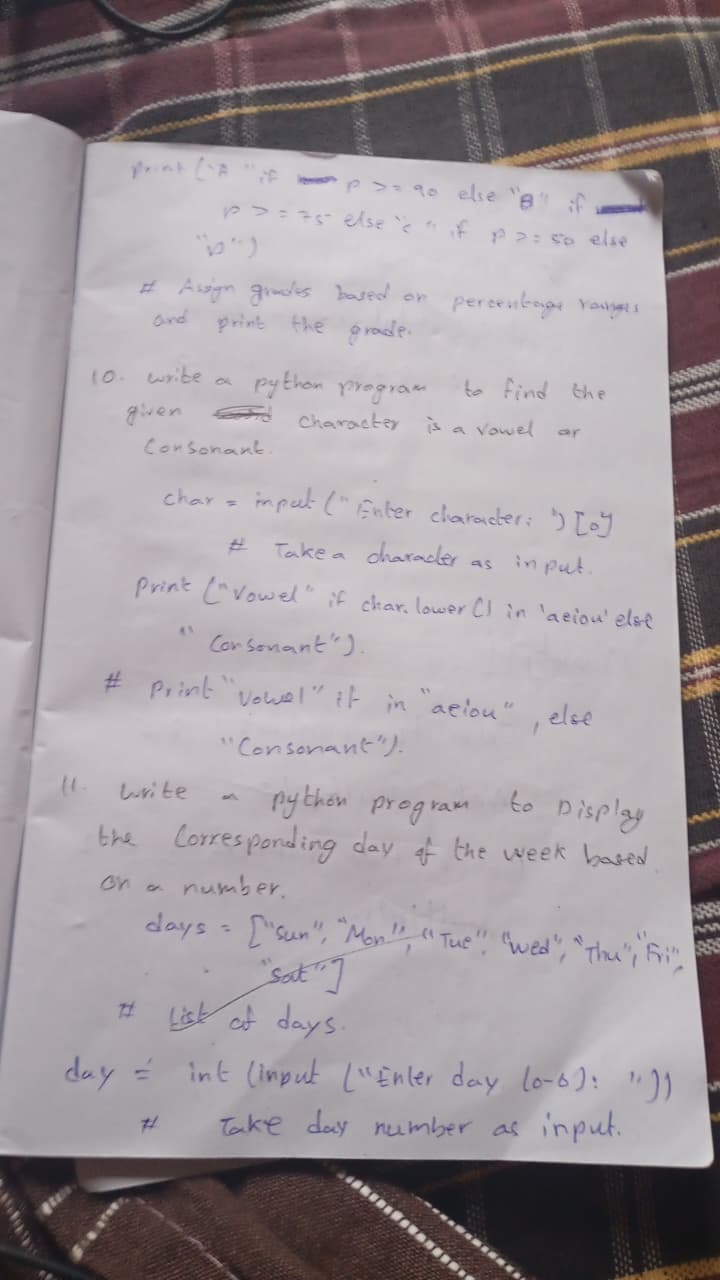 print ("A" if p >= 90 else "B" if
p >= 75 else "c" if p >= 50 else
"D")
# Assign grades based on percentage ranges
and print the grade.
10. write a python program to find the
given character is a vowel or
Consonant.
char = input ("Enter character: ") [0]
# Take a character as input.
Print ("Vowel" if char.lower() in 'aeiou' else
"Consonant").
# Print "vowel" if in "aeiou", else
"Consonant").
11. write a python program to Display
the Corresponding day of the week based
on a number.
days = ["Sun", "Mon", "Tue", "Wed", "Thu", "Fri",
"Sat"]
# List of days.
day = int (input ("Enter day (0-6): "))
# Take day number as input.